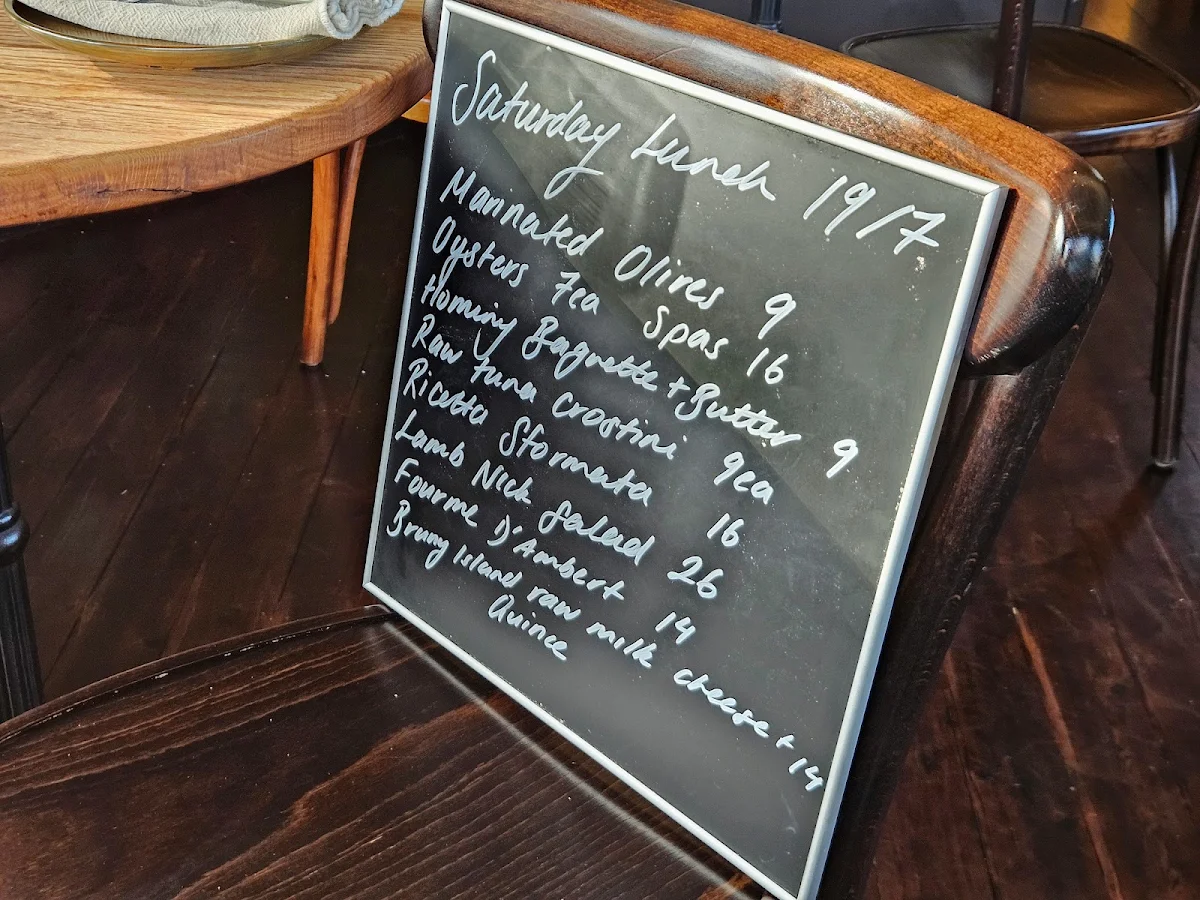 Saturday Lunch 19/7
Marinated Olives 9
Oysters 7ea 5pas 16
Hominy Baguette + Butter 9
Raw tuna crostini 9ea
Ricotta Sformata 16
Lamb Nick Salad 26
Fourme D'Ambert 14
Bruny Island raw milk cheese + 14
Quince